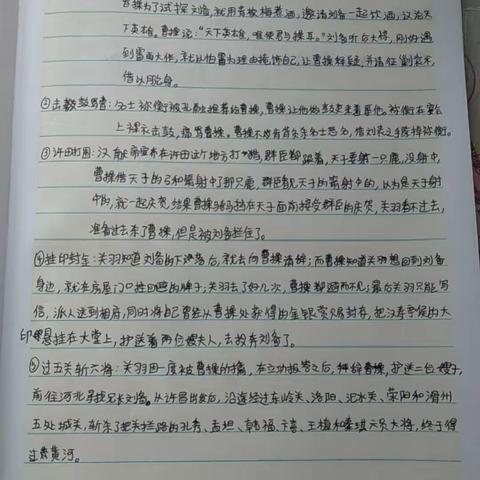 曹操为了试探刘备,就用青梅煮酒,邀请刘备一起饮酒,议论天
下英雄。曹操说:“天下英雄,唯使君与操耳。”刘备听后大惊,刚好遇
到雷雨大作,就以怕雷为理由掩饰自己,让曹操释疑,并请征剿袁术,
借以脱身。
②击鼓骂曹:名士祢衡被孔融推荐给曹操,曹操让他做鼓吏来羞辱他。祢衡在宴会
上裸衣击鼓,痛骂曹操。曹操不想有背杀名士恶名,借刘表之手除掉祢衡。
③许田打围:汉献帝在许田这个地方打猎,群臣都跟着,天子要射一只鹿,没射中,
曹操借天子的弓和箭射中了那只鹿,群臣都见天子的箭射中的,以为是天子射
中的,就一起庆贺,结果曹操骑马挡在天子面前接受群臣的庆贺,关羽看不过去,
准备过去杀了曹操,但是被刘备拦住了。
④挂印封金:关羽知道刘备的下落后,就去向曹操请辞;而曹操知道关羽想回到刘备
身边,就在房屋门口挂回避的牌子;关羽去了好几次,曹操都避而不见;最后关羽只能写
信,派人送到相府,同时将自己曾经从曹操处获得的金银赏赐封存,把汉寿亭侯的大
印悬挂在大堂上,护送着两位嫂夫人,去投奔刘备了。
⑤过五关斩六将:关羽因一度被曹操所擒,在立功报答之后,拜辞曹操,护送二位嫂子,
前往河北寻找兄长刘备。从许昌出发后,沿途经过东岭关、洛阳、汜水关、荥阳和滑州
五处城关,斩杀了把关拦路的孔秀、孟坦、韩福、卞喜、王植和秦琪六员大将,终于得
过黄河。